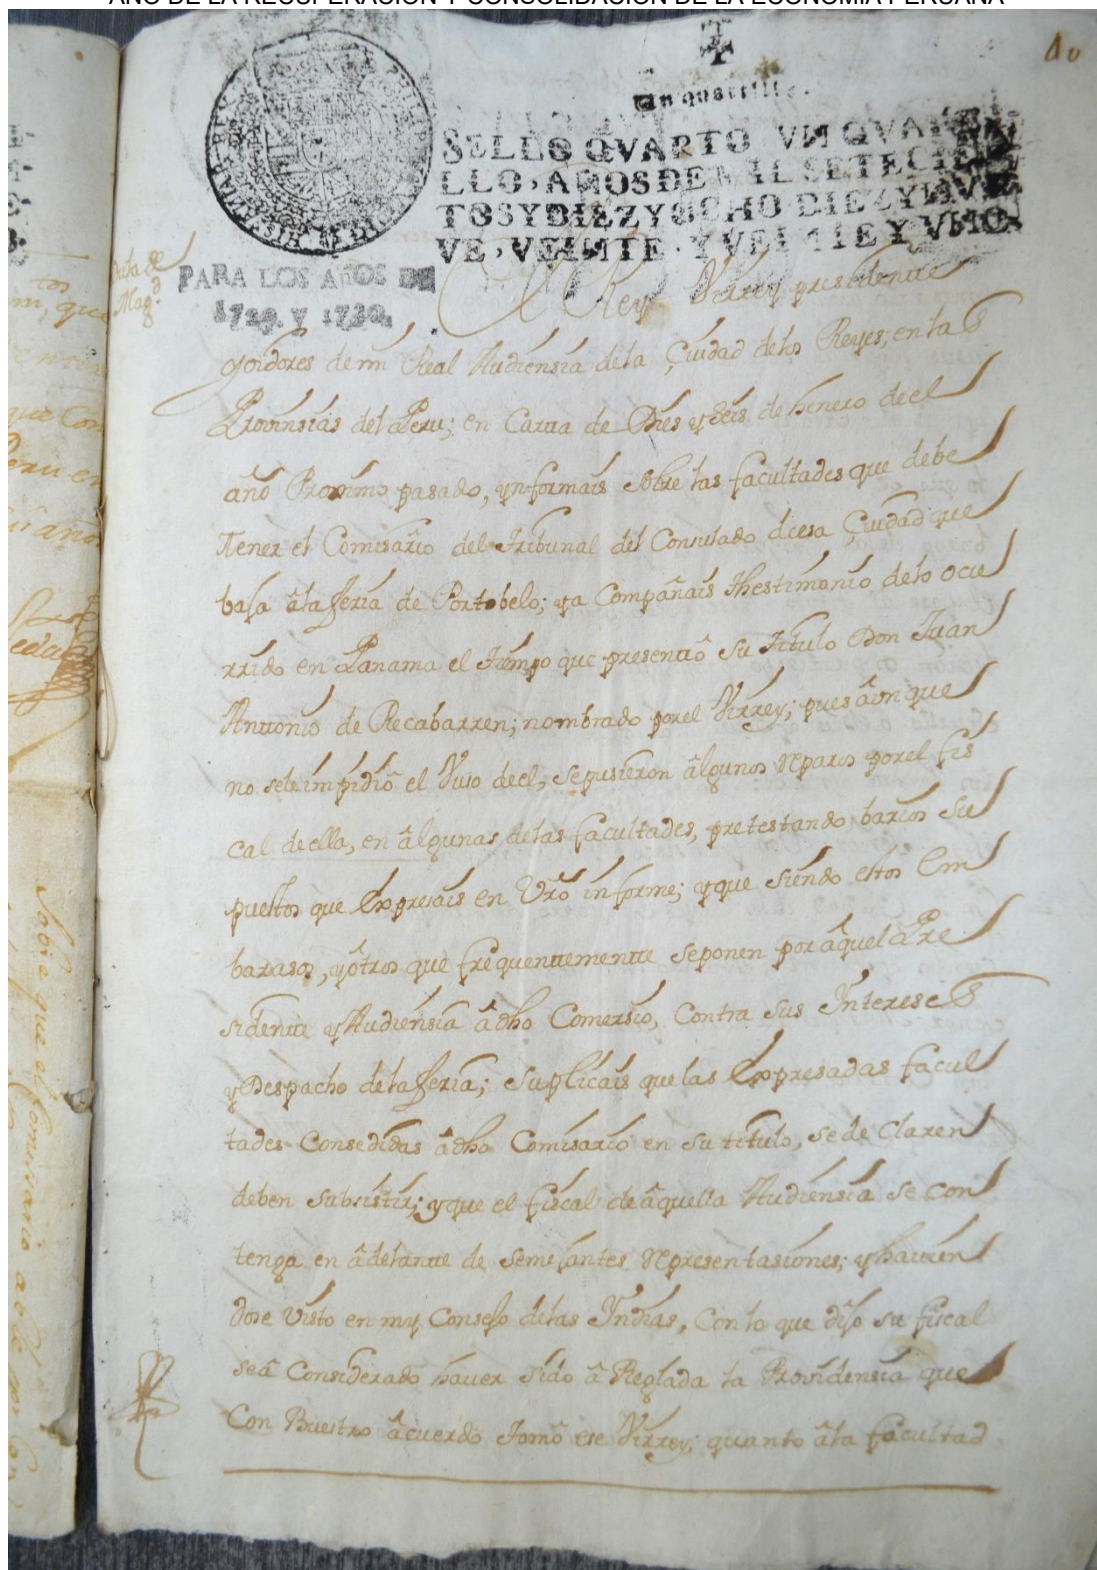 AÑO DE LA RECUPERACIÓN Y CONSOLIDACIÓN DE LA ECONOMÍA PERUANA
40
Un quartillo.
SELLO QVARTO VN QVARTI
LLO, AÑOS DE MIL SETECIEN
TOS Y DIEZ Y OCHO DIEZ Y NVE
VE, VEINTE Y VEINTE Y VNO.
PARA LOS AÑOS DE
1729. Y 1730.
El Rey Virrey presidentte
y oidores de mi Real Audiensia de la Çiudad de los Reyes, en las
Provinsias del Peru; en Carta de Dies y seis de henero de el
año Proximo pasado, ynformais sobre las facultades que debe
Tener el Comisario del Tribunal del Consulado de esa Çiudad que
basa â la feria de Portobelo; y a Compañais Thestimonio de lo ocu
rrido en Panama el Tiempo que presentô su Titulo Don Juan
Anttonio de Recabarren; nombrado por el Virrey; pues âunque
no se le impidiô el Vuso de el, se pusieron âlgunos Reparos por el fis
cal de ella, en âlgunas de las facultades, pretestando barios Su
puestos que Expresais en Vrô informe; y que siendo estos Em
barasos, y ôtros que frequenttementte se ponen por âquel Pre
sidente y Audiensia â dho Comersio, Contra sus Ynterese s
y Despacho de la feria; suplicais que las Expresadas facul
tades Consedidas â dho Comisario en su titulo, se de Claren
deben subsistir; y que el fiscal de âquella Audiensia se con
tenga en âdelantte de semejantes Representasiones; y havien
dose Visto en my Consejo de las Yndias, Con lo que dijo su fiscal
se â Considerado haver sido â Reglada la Providensia que
Con Buestro âcuerdo Tomô ese Virrey; quanto â la facultad